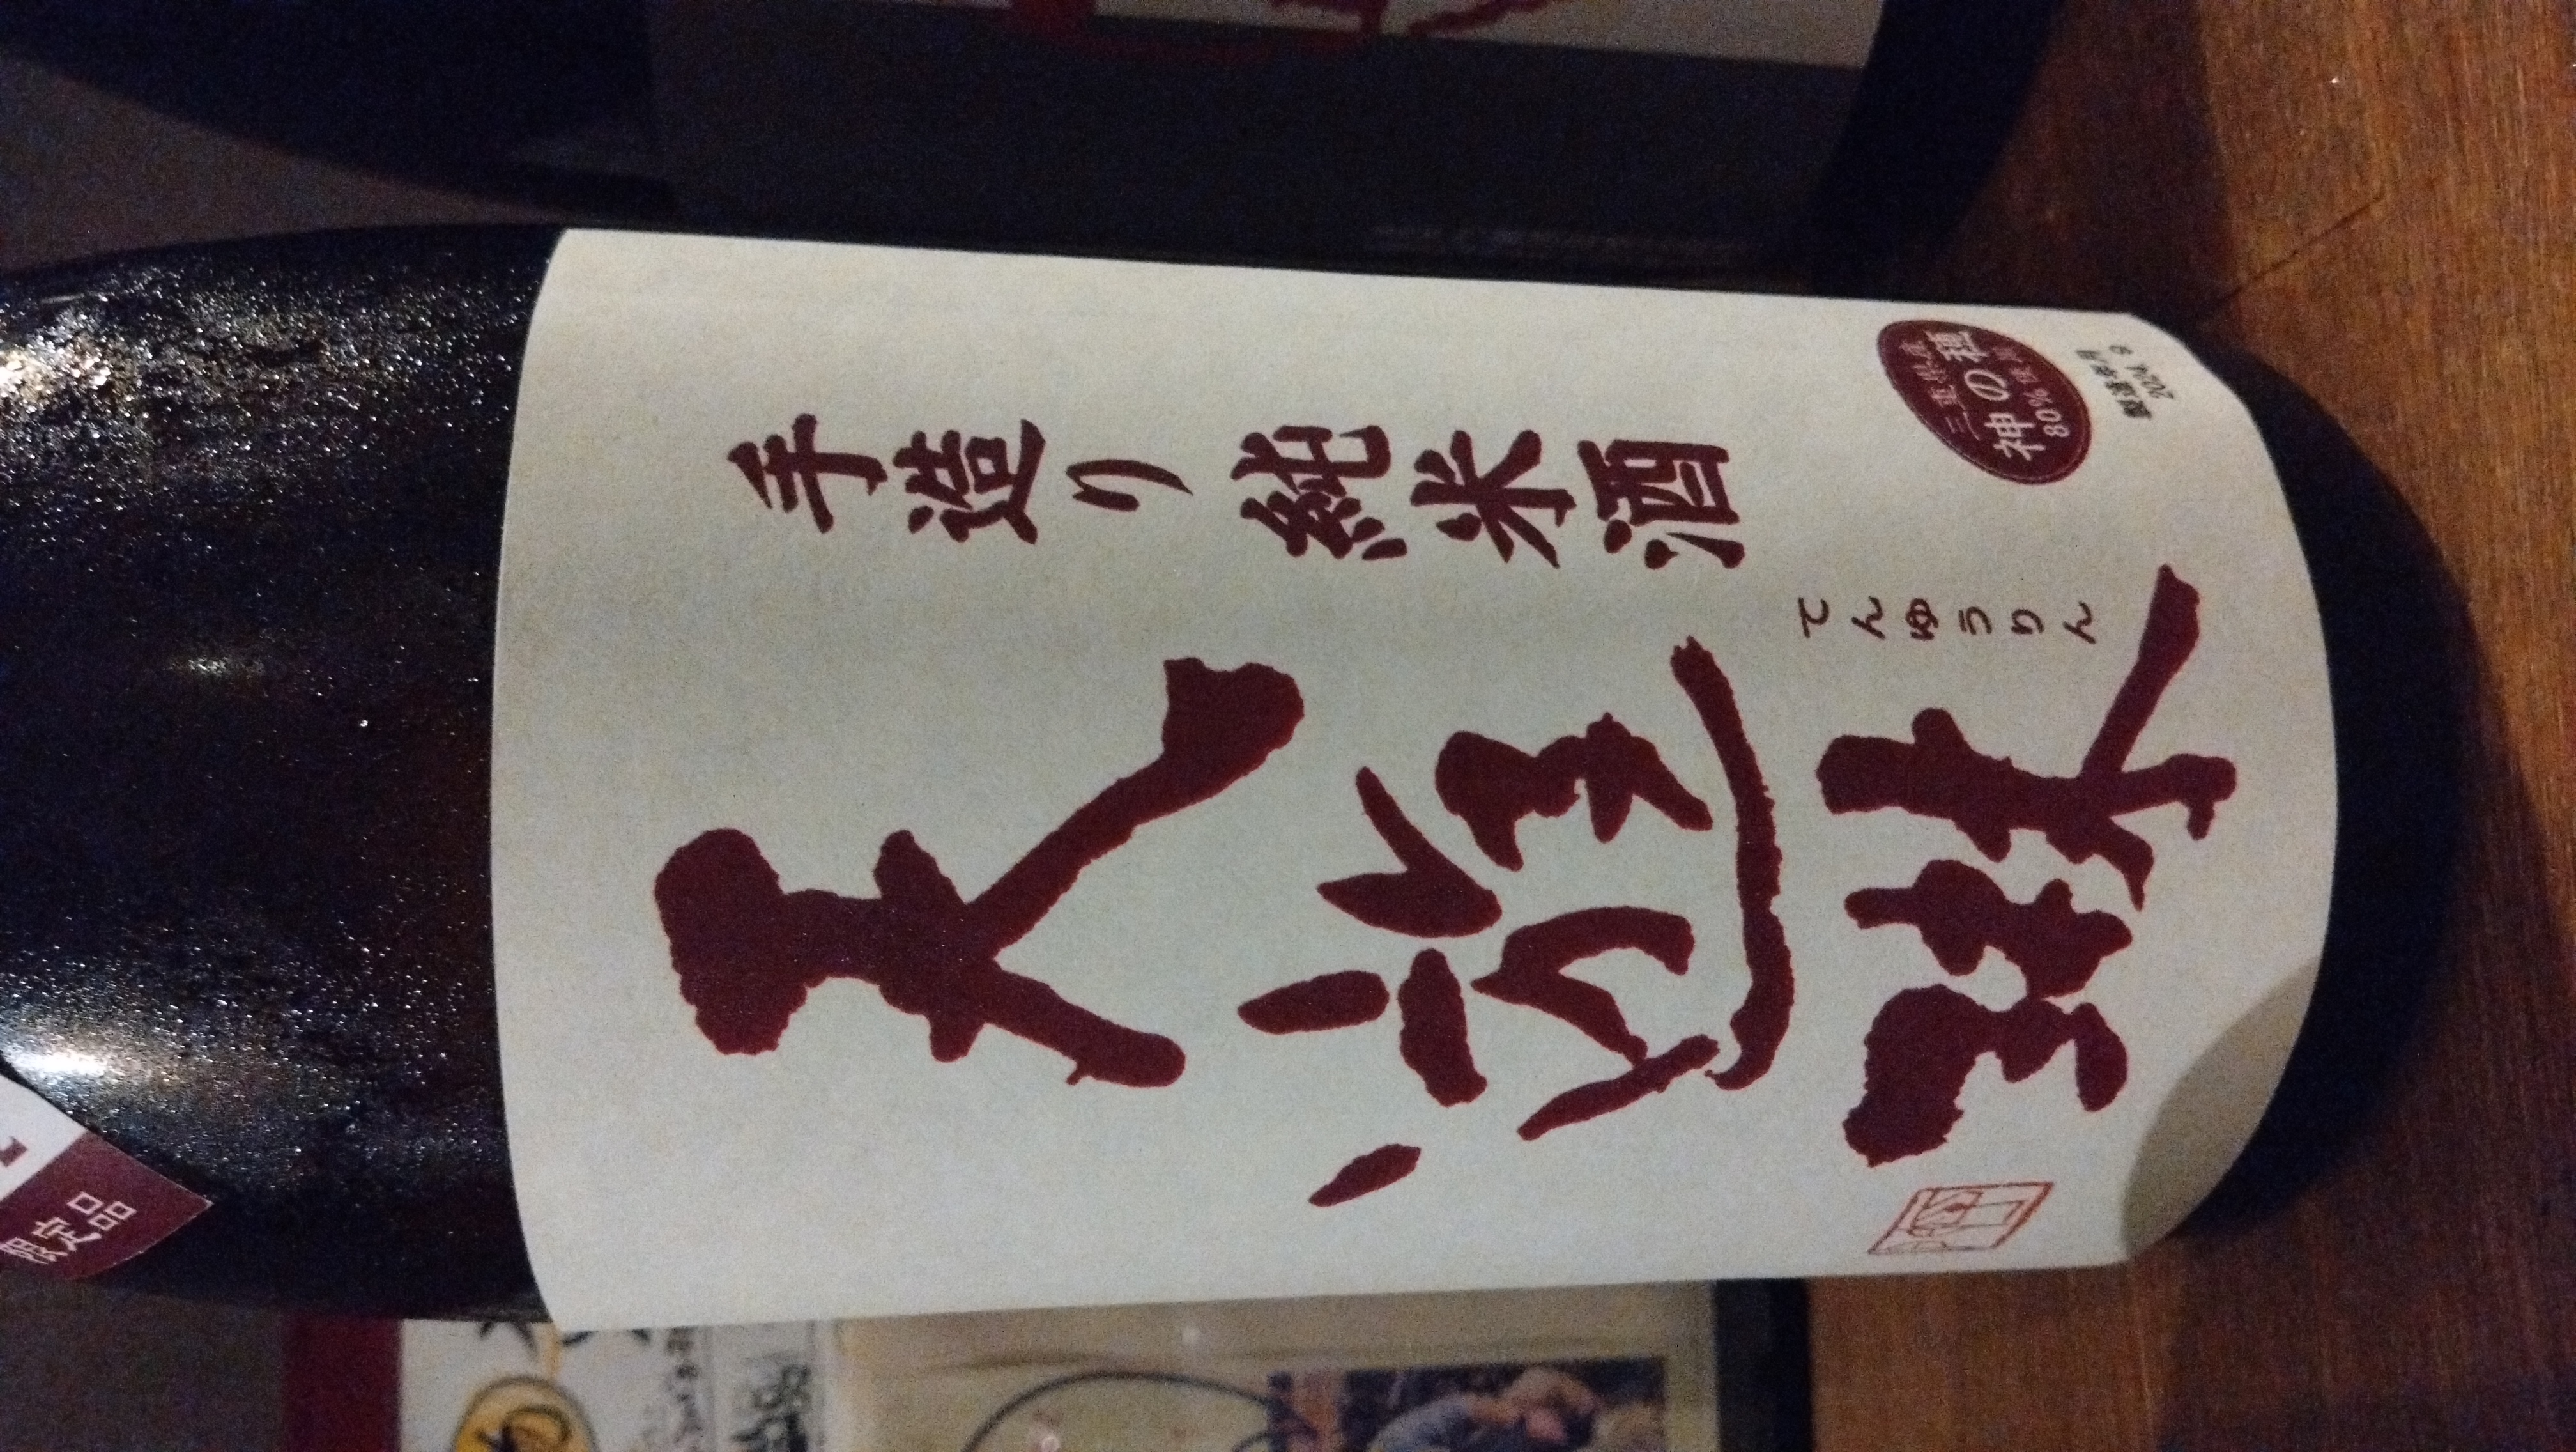 手造り 純米酒
てんゆうりん
天遊琳
三重県産
神の穂
80%使用
醸造年月
2024. 9
限定品